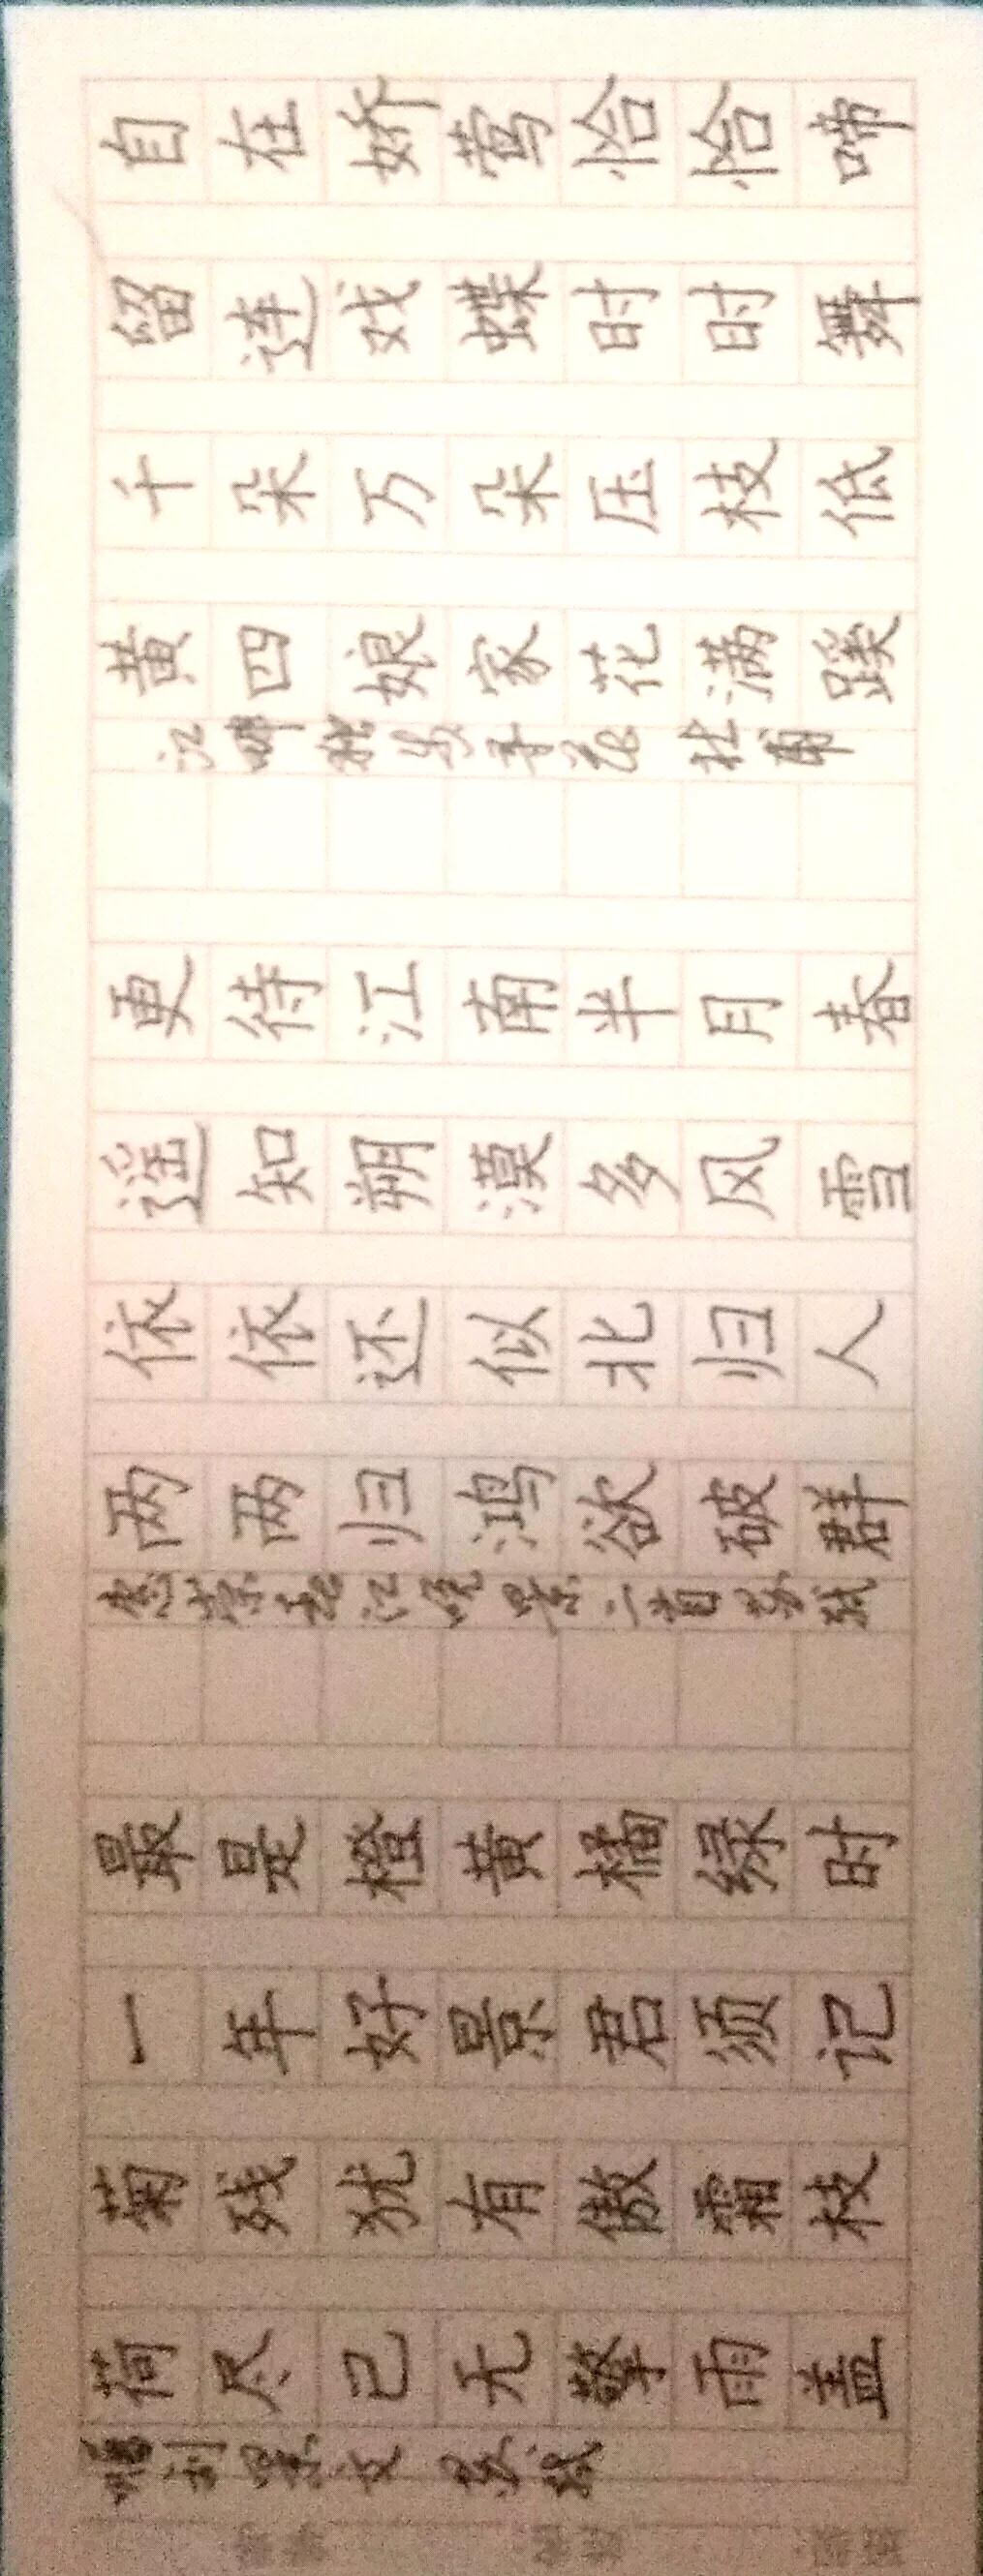 赠刘景文 苏轼
荷尽已无擎雨盖
菊残犹有傲霜枝
一年好景君须记
最是橙黄橘绿时
惠崇春江晓景二首 苏轼
两两归鸿欲破群
依依还似北归人
遥知朔漠多风雪
更待江南半月春
江畔独步寻花 杜甫
黄四娘家花满蹊
千朵万朵压枝低
留连戏蝶时时舞
自在娇莺恰恰啼